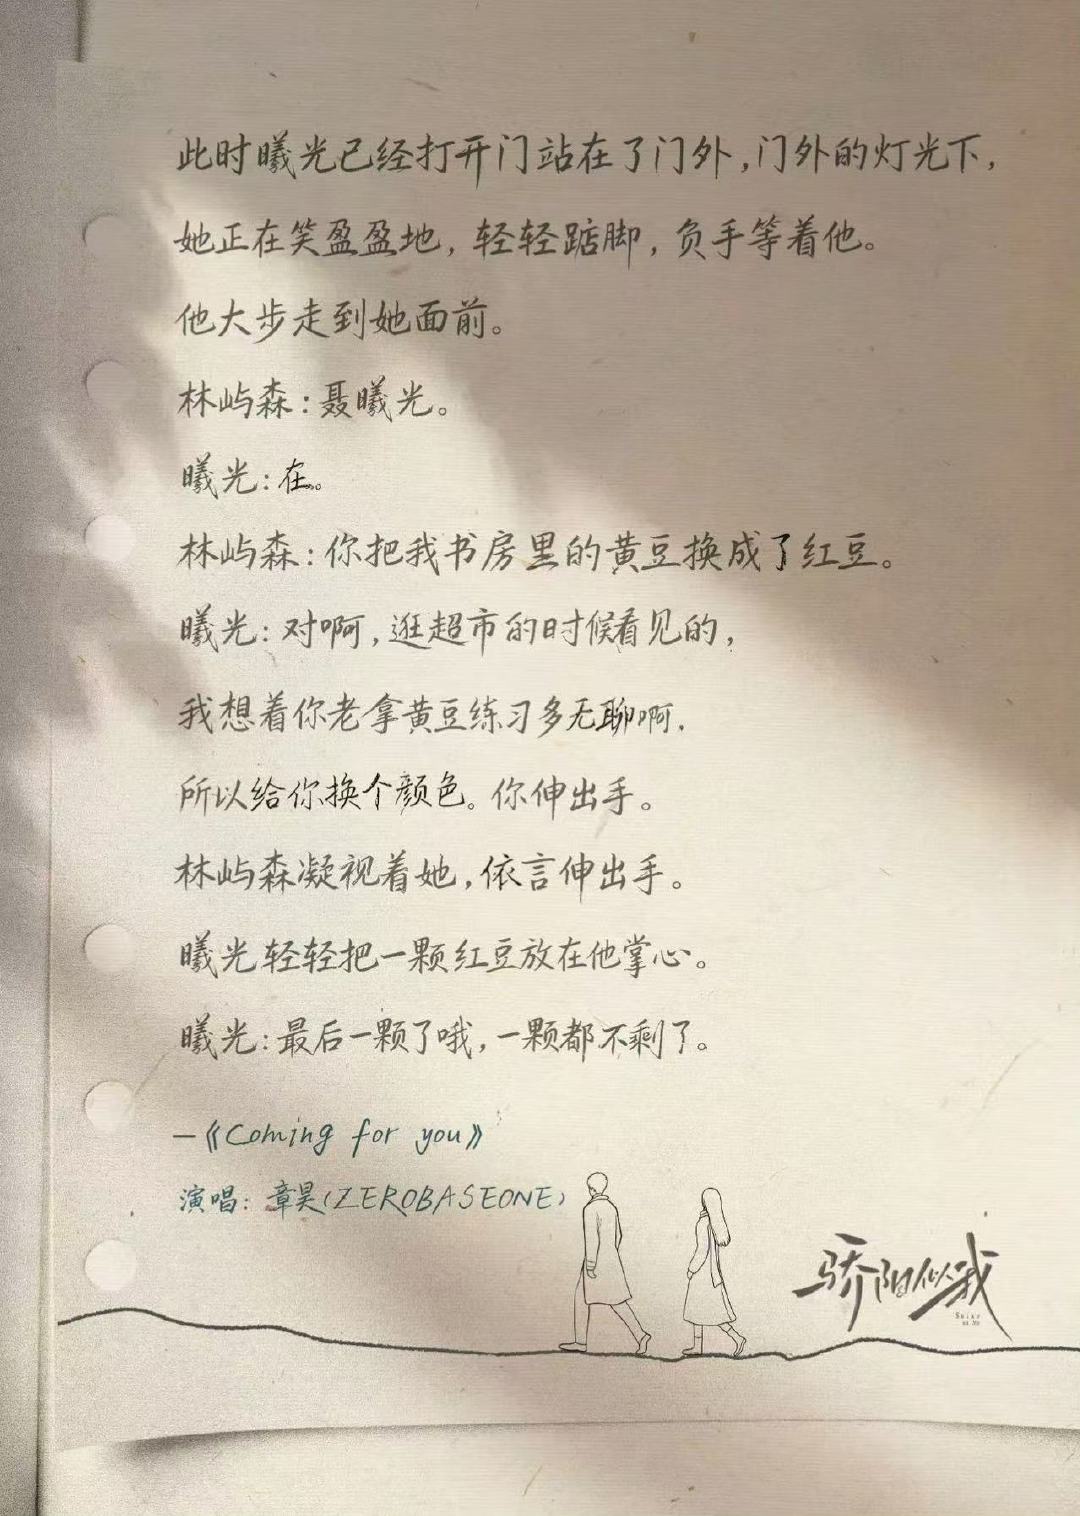 此时曦光已经打开门站在了门外,门外的灯光下,
她正在笑盈盈地,轻轻踮脚,负手等着他。
他大步走到她面前。
林屿森:聂曦光。
曦光:在。
林屿森:你把我书房里的黄豆换成了红豆。
曦光:对啊,逛超市的时候看见的,
我想着你老拿黄豆练习多无聊啊.
所以给你换个颜色。你伸出手。
林屿森凝视着她,依言伸出手。
曦光轻轻把一颗红豆放在他掌心。
曦光:最后一颗了哦,一颗都不剩了。
—《Coming for you》
演唱:章昊(ZEROBASEONE)
骄阳似我